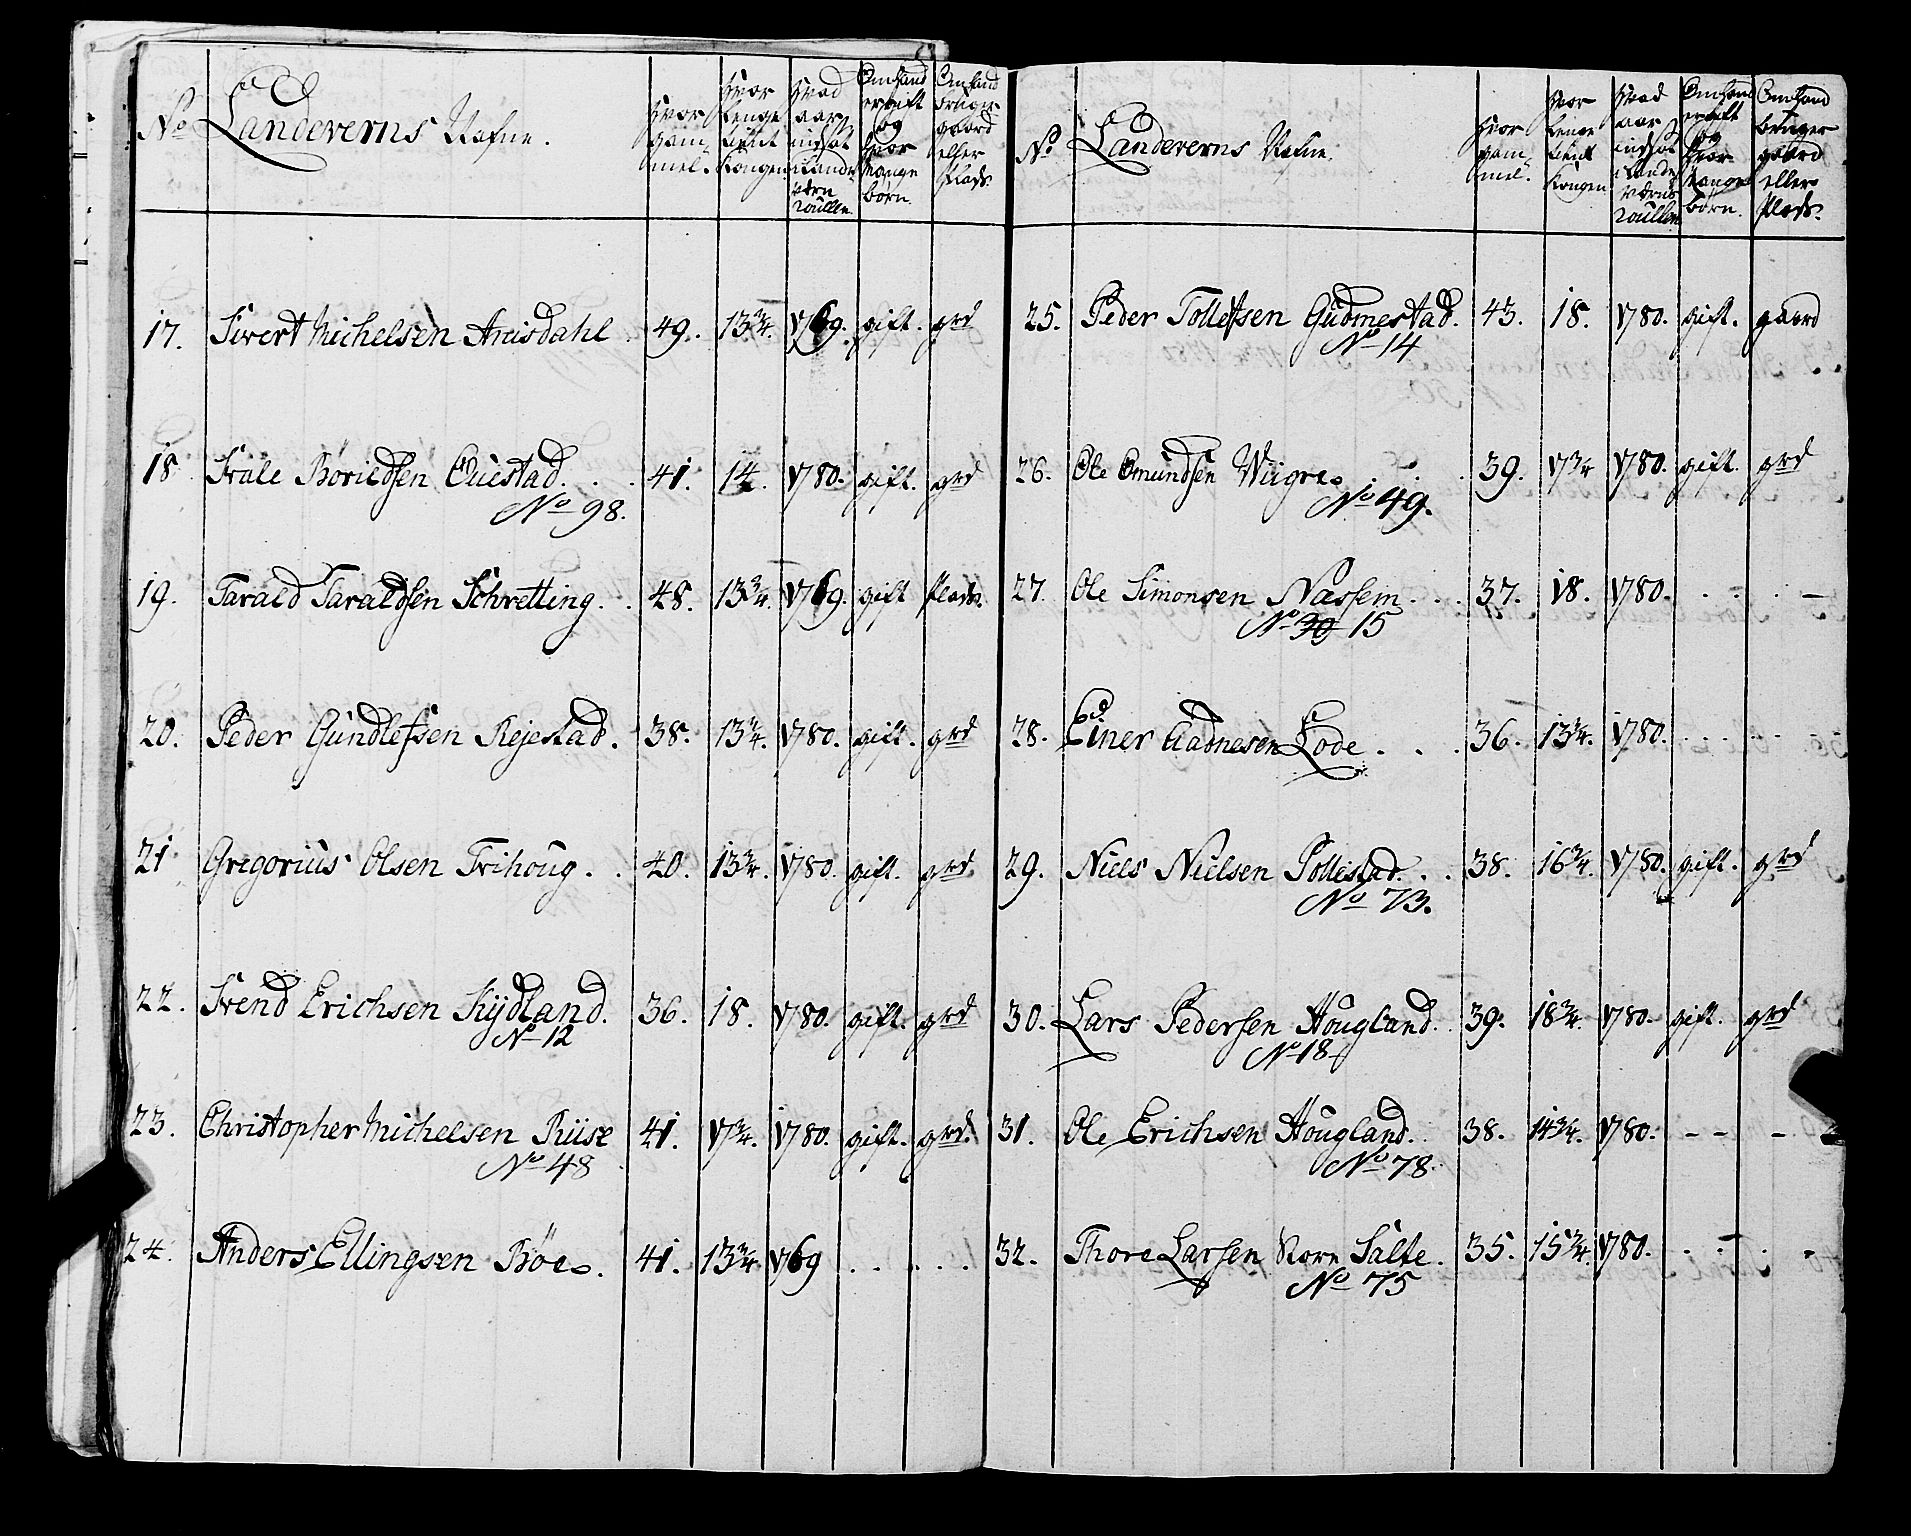 No Landeverns Nafne. Hvor gam- mel. Hvor lenge tient Kongen Hvad aar indsat i Lande- værn roullen Om hand er gift og hvor mange børn. Om hand bruger gaard eller Plads
17. Sivert Michelsen Anisdahl 49. 13 3/4. 1769. gift. grd
18 Svale Børildsen Questad. 41. 14. 1780. gift. grd
No 98.
19. Tarald Taraldsen Schretting. 48. 13 3/4. 1769. gift Plads.
20. Peder Gundlefsen Rejestad. 38. 13 3/4. 1780. gift. grd
21 Gregorius Olsen Trihoug. 40. 13 3/4. 1780. gift. grd.
22. Svend Erichsen Kydland. 36. 18. 1780. gift. grd
No 12
23. Christopher Michelsen Riise 41. 17 3/4. 1780. gift. grd.
No 48
24. Anders Ellingsen Bøe. 41. 13 3/4. 1769 . . . . .
No Landeverns Nafne. Hvor gam- mel. Hvor lenge tient Kongen Hvad aar indsat i Lande- Værns roullen Om hand er gift og hvor mange børn. Om hand bruger gaard eller Plads.
25. Peder Tollefsen Gudmestad. 43. 18. 1780. gift. gaard
No 14
26. Ole Omundsen Wiigre. 39. 17 3/4 1780. gift. grd
No 49.
27. Ole Simonsen Næssem. 37. 18. 1780. . . . –
No 30 15
28. Einer Aadnesen Lode. 36. 13 3/4. 1780. . . . .
29. Niels Nielsen Pollestad. 38. 16 3/4. 1780. gift. grd
No 73.
30. Lars Pedersen Hougland. 39. 18 3/4. 1780. gift. grd
No 18
31. Ole Erichsen Hougland. 38. 14 3/4. 1780. – – –
No 78.
32. Thore Larsen Norn Salte. 35. 15 3/4. 1780. . – . .
No 75